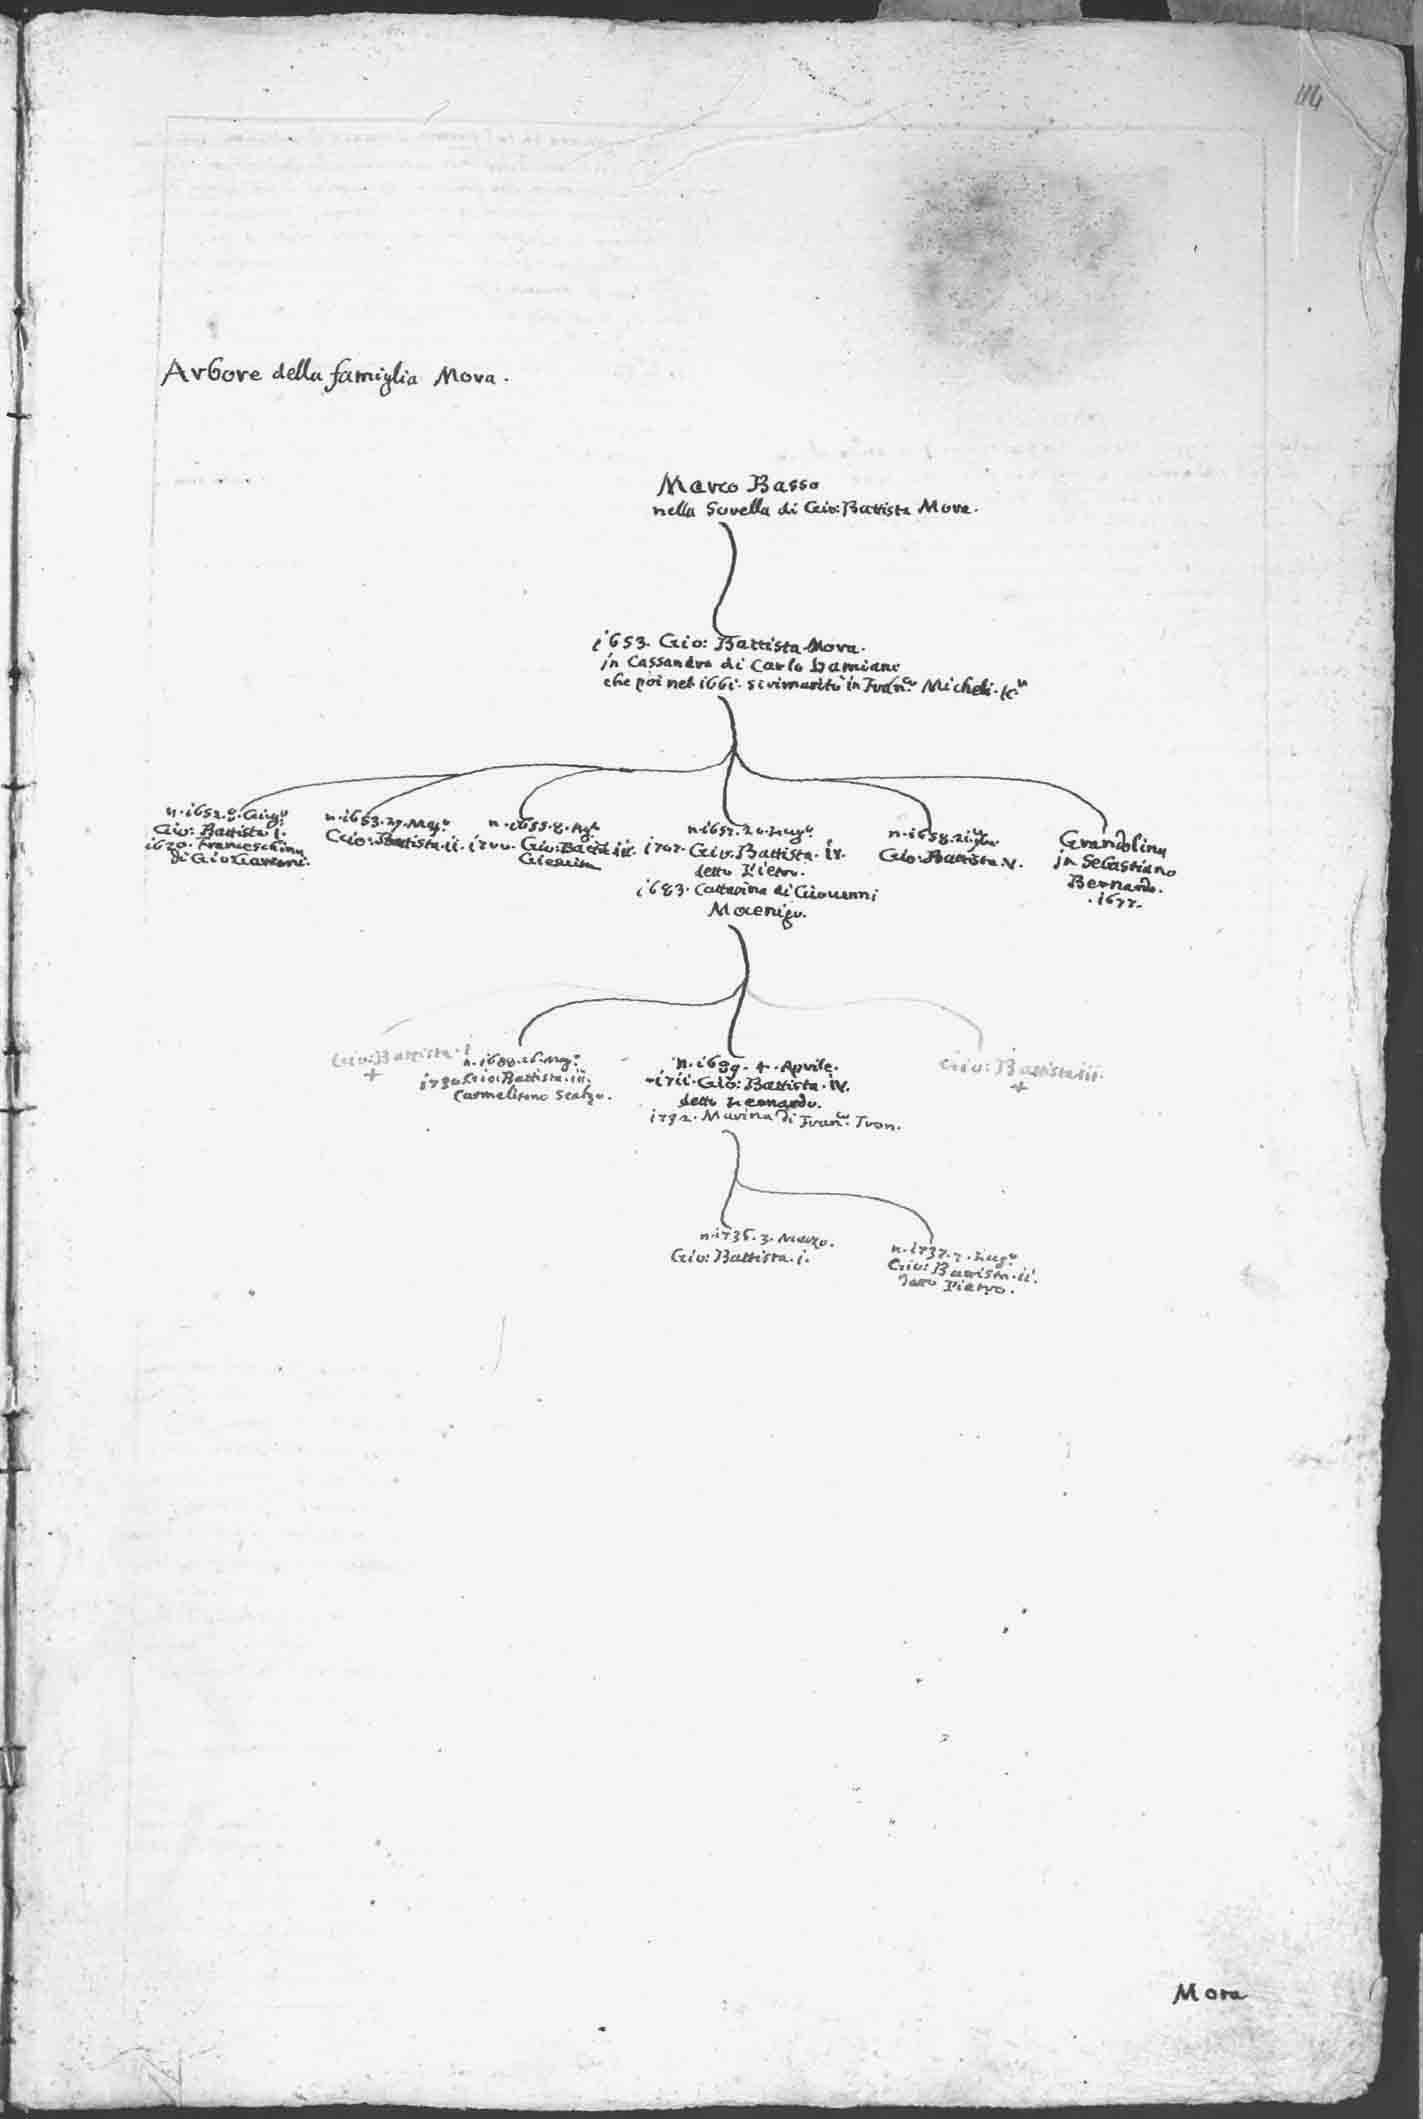 114
Arbore della famiglia Mora.
Marco Basso
nella Sorella di Gio: Battista Mora.
1653. Gio: Battista Mora.
in Cassandra di Carlo Damiani
che poi nel 1661. si rimaritò in Fran.co Micheli
Gio: Battista. i.
1670. Franceschina
di Gio
n. 1653. 27. Mag.o
Gio: Battista. ii.
n. 1655. 8.
1700. Gio: Batt.a iii.
Giesuita
n. 1657. 20. Lug.o
1707. Gio: Battista. iv.
detto Pietro.
1683. Cattarina di Giovanni
Mocenigo.
n. 1658. 21.
Gio: Battista. V.
Grandolina
in Sebastiano
Bernardo.
.1677.
Gio: Battista. i
+
n. 1688. 16. Mag.o
1730 Gio: Battista. iii.
Carmelitano Scalzo.
n. 1689. 4. Aprile.
1711. Gio: Battista. iv.
detto Leonardo.
1732. Marina di Fran.co Tron.
Gio: Battista. ii.
+
n. 1736. 3. Marzo.
Gio: Battista. i.
n. 1737. 7. Lug.o
Gio: Battista. ii.
detto Pietro.
Mora